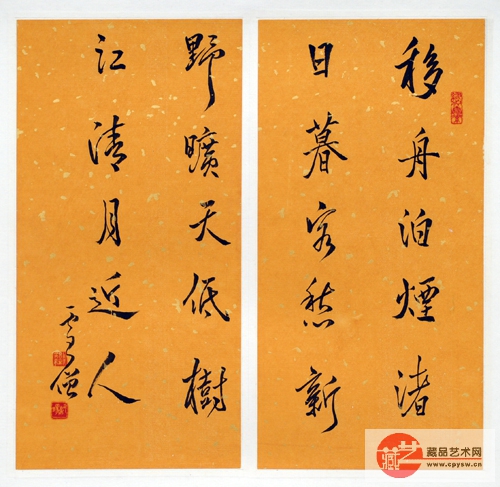 移舟泊煙渚
日暮客愁新
野曠天低樹
江清月近人
藏艺
藏品艺术网
www.cpysw.cn